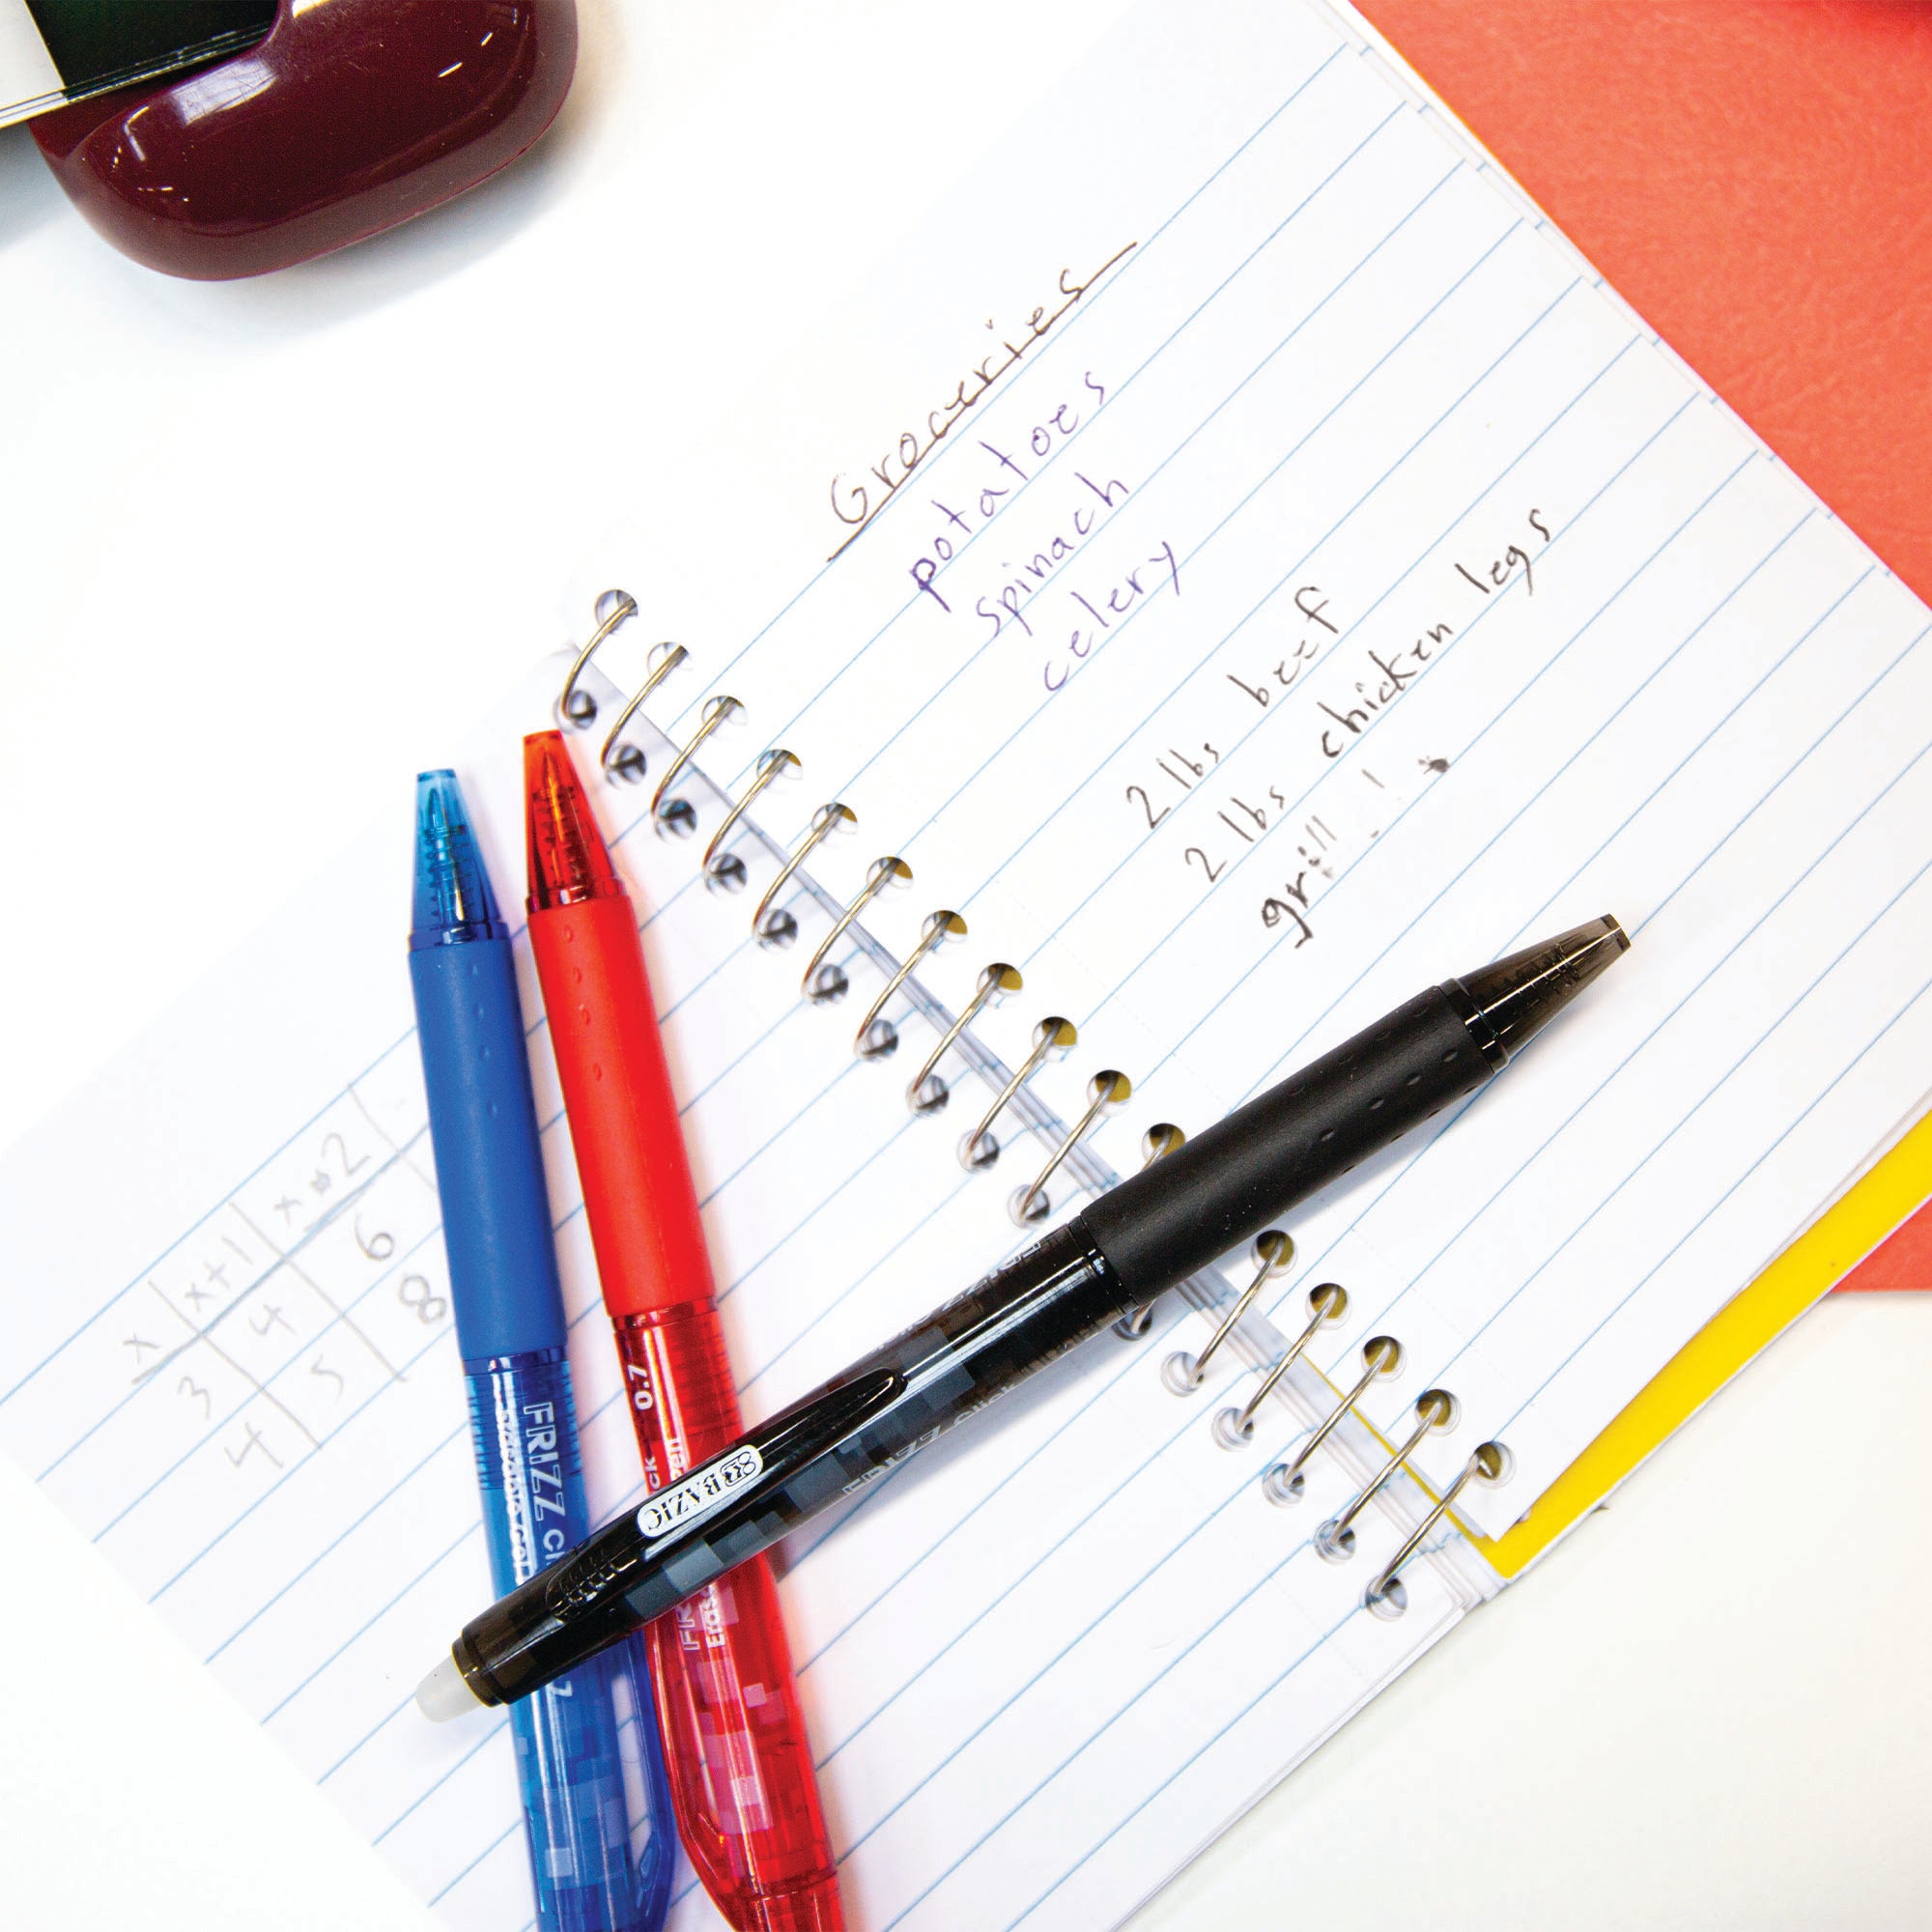 Groceries
potatoes
spinach
celery
2 lbs beef
2 lbs chicken legs
grill!
x x+1
3 4 6
4 5 8
FRIZZ
0.7
BAZIC